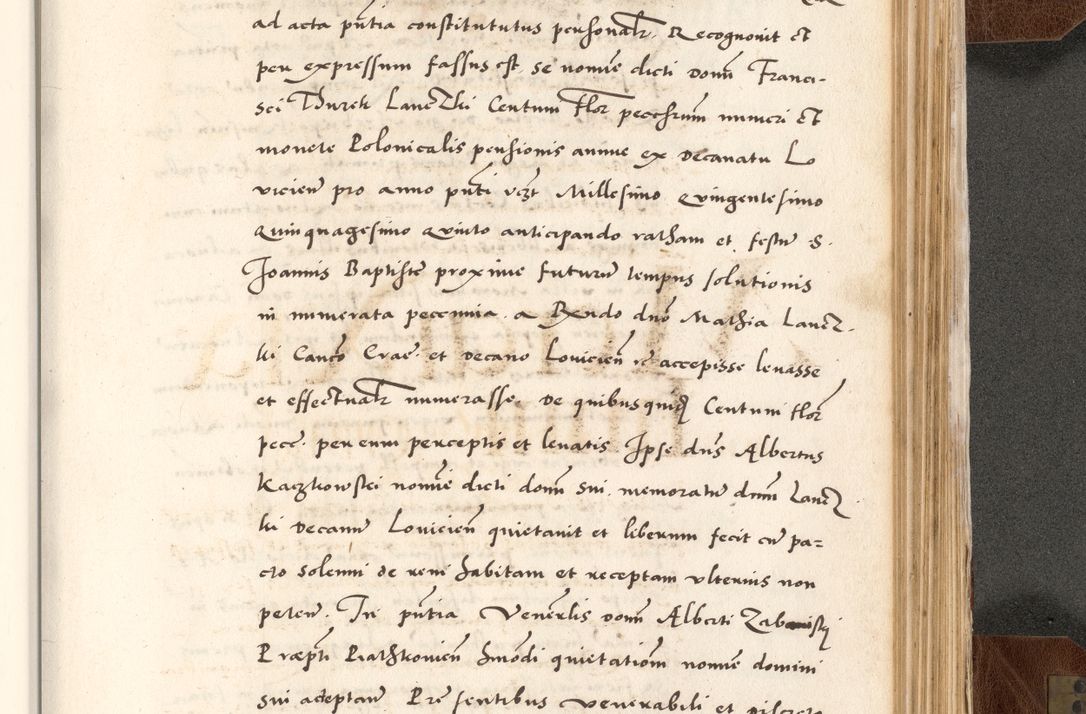 ad acta pñtia constitututus personalr. Recognouit et
per expressum fassus est, se nomine dicti domñ Franci-
sci Lanczki Centum Flor pecchrum numeri et
monete Polonicalis pensionis annue ex Decanatu Lo
vicieñ pro anno pñti vczt Millesimo Quingentesimo
Quinquagesimo Quinto anticipando ratham et festum S.
Joannis Baptiste proxime futurum tempus solutionis
in numerata peccunia. a Rxndo dño Mathia Lancz-
ki Canco Crac. et Decano Lovicieñ accepisse leuasse
et effectualr numerasse. De quibusquidem Centum flor
pecc. per eum perceptis et leuatis. Ipse dñs Albertus
Kaczkowski nomine dicti domñ sui memoratum dnum Lancz
ki Decanum Lovicieñ quietauit et liberum fecit cum pa=
cto solenni de rem habitam et receptam vlterius non
peten. In pñtia Venerlis domñ Alberti
Præpti Rathkovieñ hmodi quietationem nomine domini
sui acceptan Præsentibus venerabili et discreto